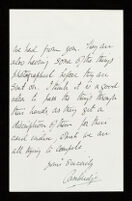 we had from you. They are
also having some of the things
photographed before they are
sent on. I think it is a good
idea to pass the things through
their hands, as they get a
description of them for their
card index that we are
all trying to compile.
Yours sincerely